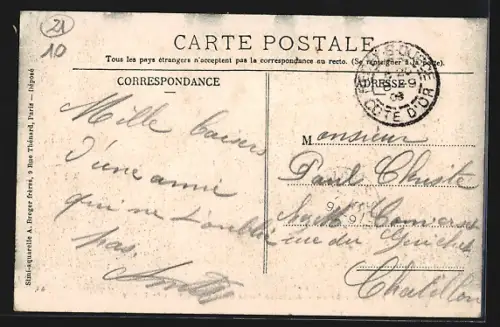 21
10
CARTE POSTALE
Tous les pays étrangers n'acceptent pas la correspondance au recto. (Se renseigner à la poste).
CORRESPONDANCE
ADRESSE
CÔTE D'OR
Mille baisers
d'une amie
qui ne t'oublie
pas.
Monsieur
Paul
rue du Guichet
Chatillon
Simi-aquarelle A. Breger frères, 9 Rue Thénard, Paris — Déposé